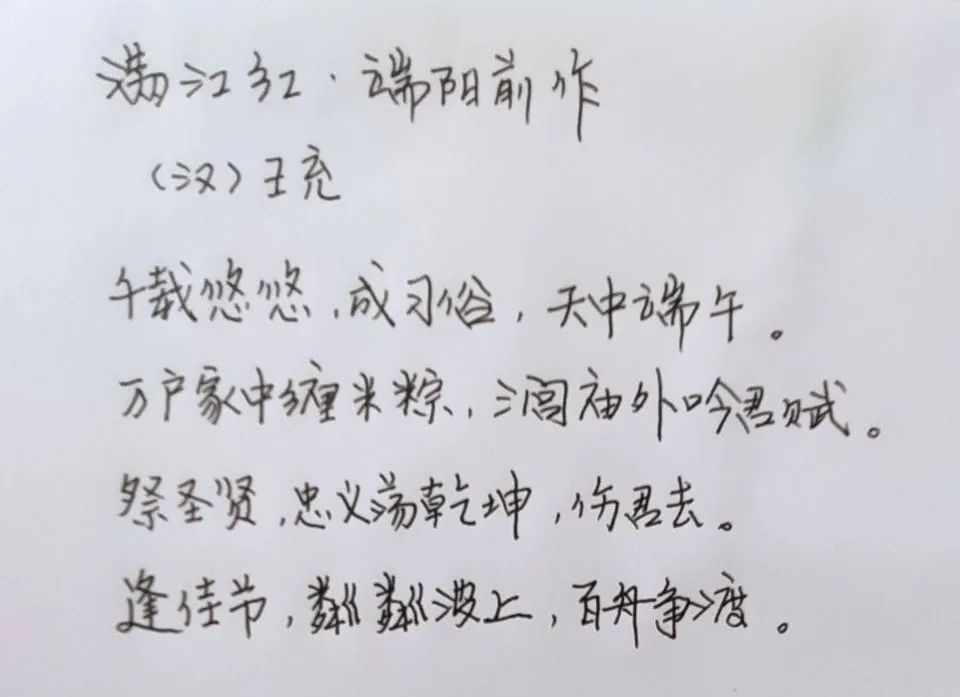 满江红·端阳前作
（汉）王充
千载悠悠,成习俗,天中端午。
万户家中缠米粽,汨罗庙外吟君赋。
祭圣贤,忠义荡乾坤,伤君去。
逢佳节,粼粼波上,百舟争渡。